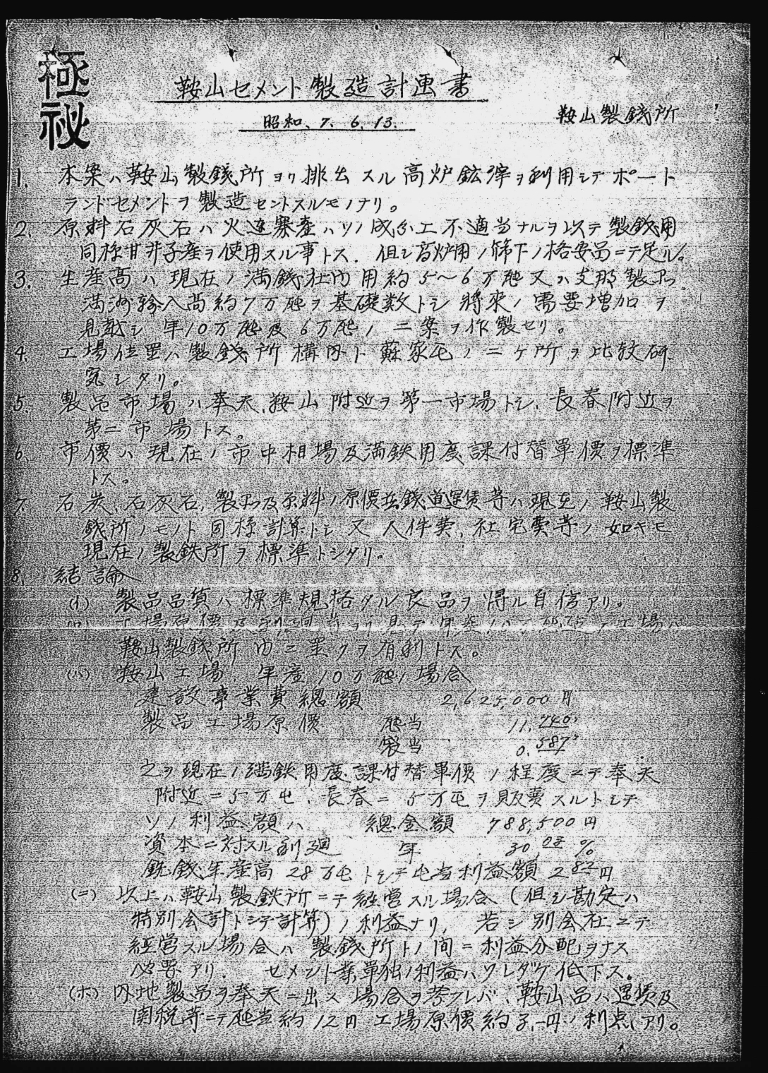 極秘
鞍山セメント製造計画書
昭和、7. 6. 13.
鞍山製鉄所
1. 本案ハ鞍山製鉄所ヨリ排出スル高炉鉱滓ヲ利用シテポート
ランドセメントヲ製造セントスルモノナリ。
2. 原料石灰石ハ火連寨産ハソノ成分上不適当ナルヲ以テ製鉄用
同様甘井子産ヲ使用スル事トス. 但シ高炉用ノ篩下ノ格安品ニテ足ル。
3. 生産高ハ現在ノ満鉄社内用約5〜6万瓲又ハ支那製品
満洲輸入高約7万瓲ヲ基礎数トシ将来ノ需要増加ヲ
見越シ年10万瓲及6万瓲ノ二案ヲ作製セリ。
4. 工場位置ハ製鉄所構内ト蘇家屯ノ二ケ所ヲ比較研
究シタリ。
5. 製品市場ハ奉天、鞍山附近ヲ第一市場トシ、長春附近ヲ
第二市場トス。
6. 市價ハ現在ノ市中相場及満鉄用度課付替單價ヲ標準
トス。
7. 石炭、石灰石、製品及原料ノ原價並鉄道運賃等ハ現在ノ鞍山製
鉄所ノモノト同様計算トシ又人件費、社宅費等ノ如キモ
現在ノ製鉄所ヲ標準トシタリ。
8. 結論
(イ) 製品品質ハ標準規格タル良品ヲ得ル自信アリ。
鞍山製鉄所内ニ置クヲ有利トス。
(ハ) 鞍山工場、年産10万瓲ノ場合
建設事業費總額 2,625,000円
製品工場原價 瓲当 11.240
袋当 0.587
之ヲ現在ノ満鉄用度課付替單價ノ程度ニテ奉天
附近ニ5万屯、長春ニ5万屯ヲ販賣スルトシテ
ソノ利益額ハ 總金額 788,500円
資本ニ対スル割廻 年 30 %
銑鉄年産高28万屯トシテ屯当利益額 2 円
(ニ) 以上ハ鞍山製鉄所ニテ経営スル場合(但シ勘定ハ
特別会計トシテ計算)ノ利益ナリ、若シ別会社ニテ
経営スル場合ハ製鉄所トノ間ニ利益分配ヲナス
必要アリ、セメント業單独ノ利益ハソレダケ低下ス。
(ホ) 内地製品ヲ奉天ニ出ス場合ヲ考フレバ、鞍山品ハ運賃及
関税等ニテ瓲当約12円工場原價約3.円ノ利点アリ。